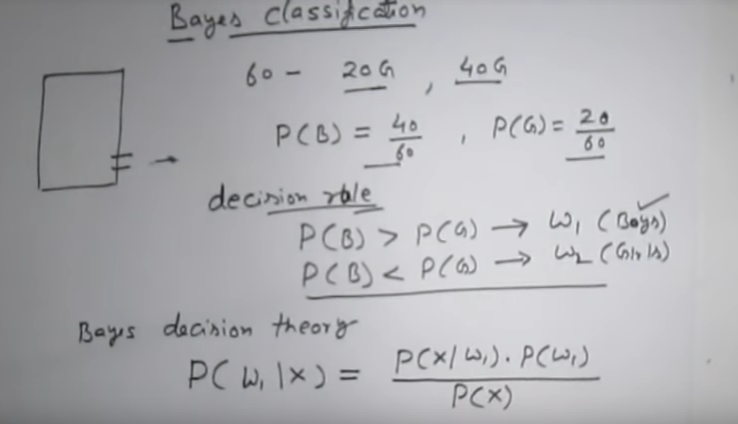 Bayes classification
60 - 20G, 40G
P(B) = 40/60, P(G) = 20/60
decision rule
P(B) > P(G) → ω₁ (Boys) ✓
P(B) < P(G) → ω₂ (Girls)
Bayes decision theory
P(ω₁|x) = P(x/ω₁) · P(ω₁) / P(x)